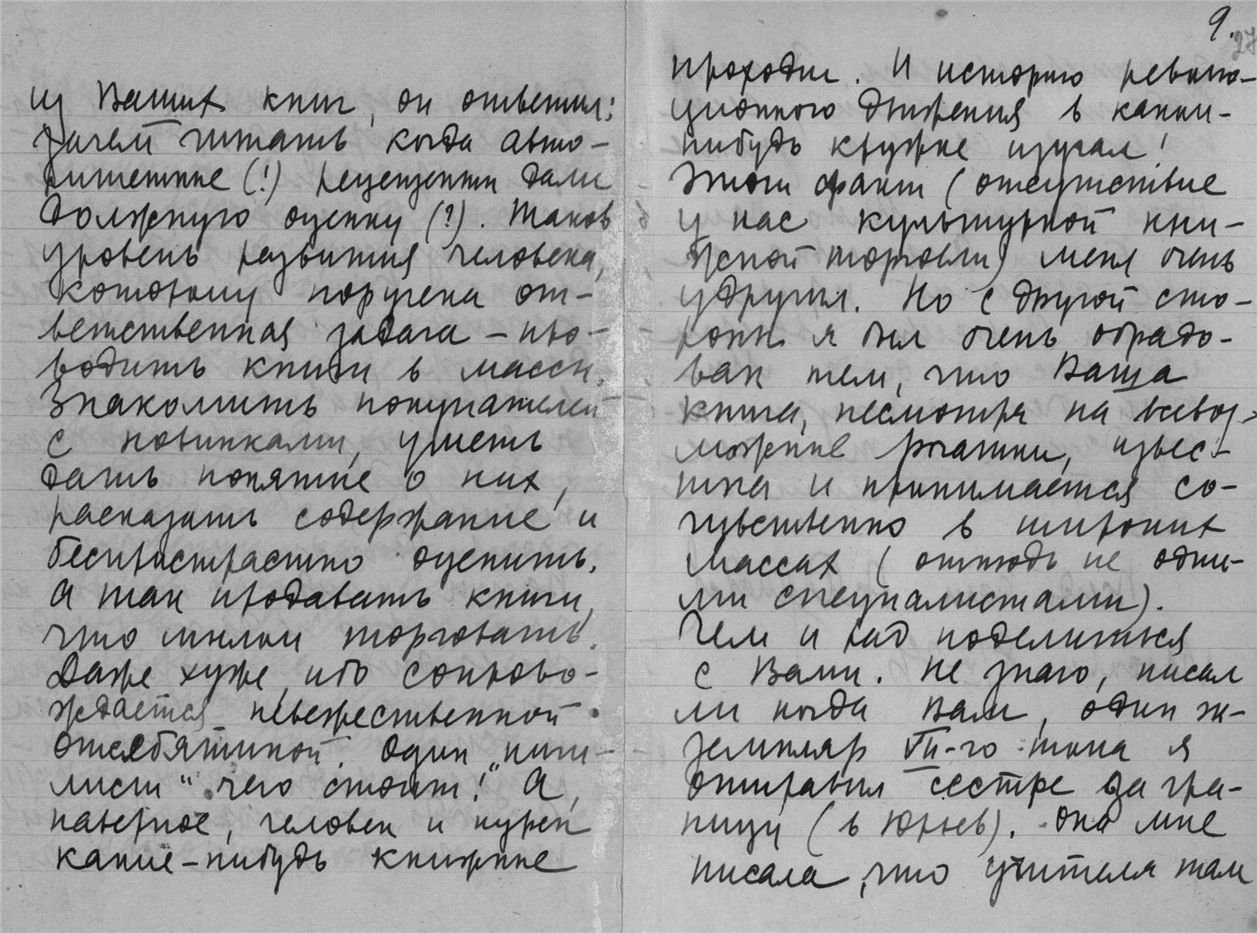 из Ваших книг, он ответил:
зачем читать когда авто-
ритетные (!) рецензенты дали
должную оценку (?). Таков
уровень развития человека,
которому поручена от-
ветственная задача – про-
водить книги в массы.
Знакомить покупателей
с новинками, уметь
дать понятие о них,
рассказать содержание и
беспристрастно оценить.
А так продавать книги,
что мылом торговать.
Даже хуже, ибо сопрово-
ждается невежественной
отсебятиной. Один „ниги-
лист“ чего стоит! А,
наверное, человек и курсы
какие-нибудь книжные
9.
27
проходил. И историю револю-
ционного движения в каком-
нибудь кружке изучал!
Этот факт (отсутствие
у нас культурной кни-
жной торговли) меня очень
удручил. Но с другой сто-
роны я был очень обрадо-
ван тем, что Ваша
книга, несмотря на всевоз-
можные рогатки, извес-
тна и принимается со-
чувственно в широких
массах (отнюдь не одни-
ми специалистами).
Чем и рад поделиться
с Вами. Не знаю, писал
ли когда Вам, один эк-
земпляр VII-го тома я
отправил сестре за гра-
ницу (в Юрьев). Она мне
писала, что учителя там